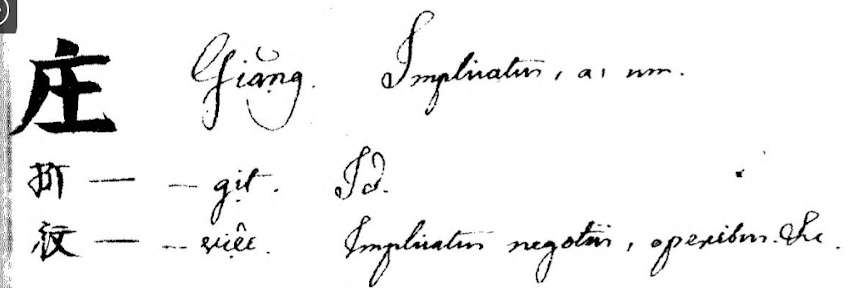 庄 Giăng. Implicatus, a, um.
折 — – gịt. Id.
— – việc. Implicatus negotiis, operibus. &c.